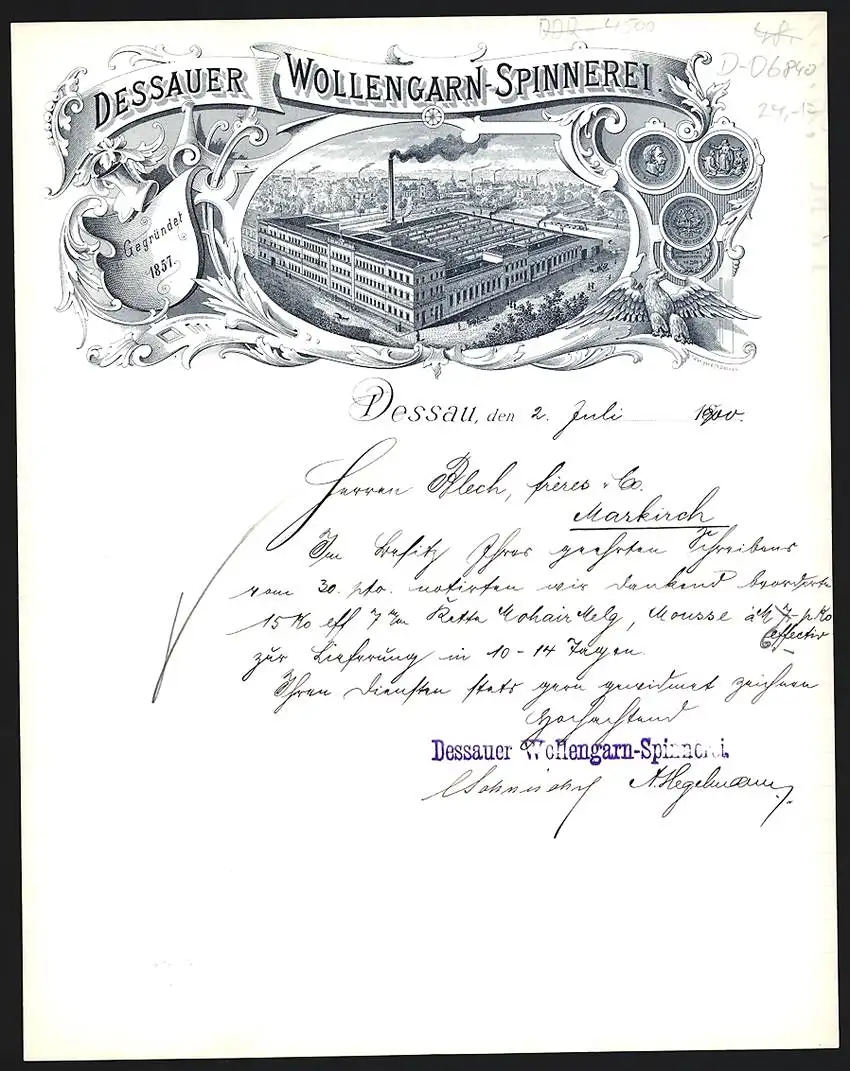 DDR-4500
D-06840
DESSAUER WOLLENGARN-SPINNEREI.
Gegründet
1857.
Dessau, den 2. Juli 1900.
Herren Blech, frères & Co.
Markirch
Im Besitz Ihres geehrten Schreibens
vom 30. pto. notirten wir dankend beorderte
15 Ko eff 7 Kette Mohair Melg, Mousse à M 7 p Ko
effectiv
zur Lieferung in 10-14 Tagen.
Ihren Diensten stets gern gewidmet zeichnen
Hochachtend
Dessauer Wollengarn-Spinnerei.
A. Hegelmann